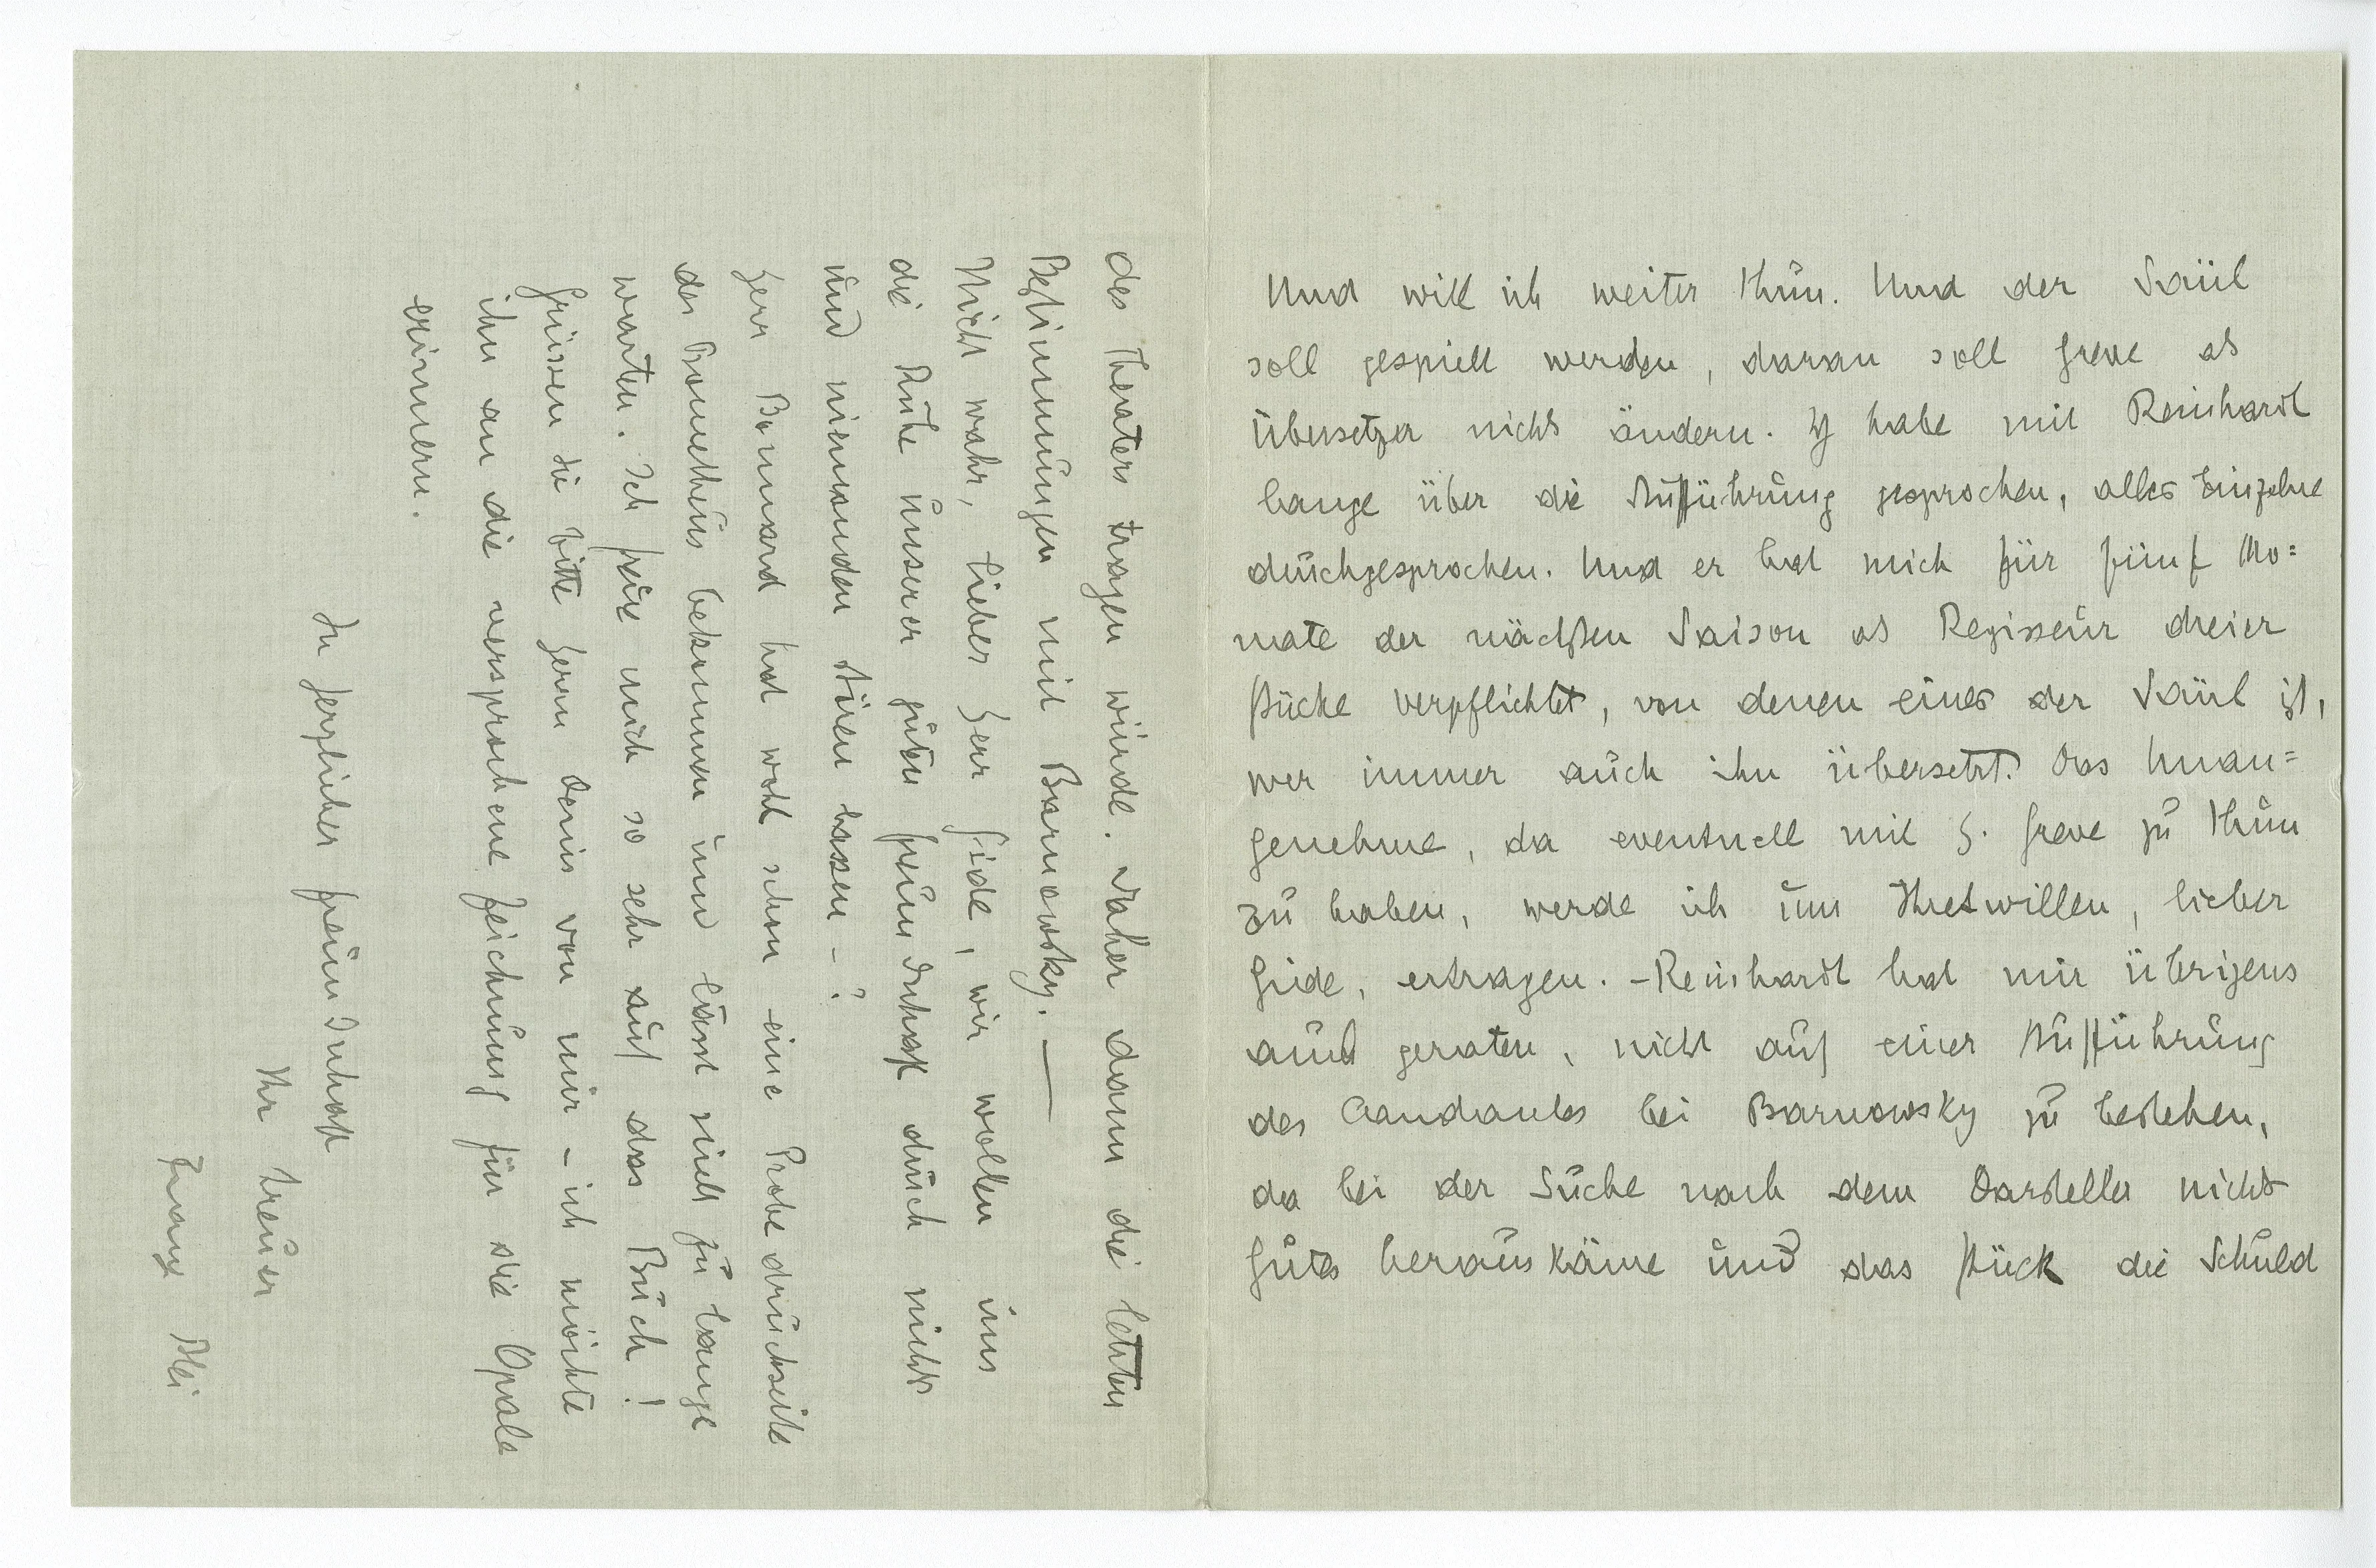 Und will ich weiter thun. Und der Saül
soll gespielt werden, daran soll Greve als
Übersetzer nichts ändern. Ich habe mit Reinhardt
lange über die Aufführung gesprochen, alles Einzelne
durchgesprochen. Und er hat mich für fünf Mo=
nate der nächsten Saison als Regisseur dreier
Stücke verpflichtet, von denen eines der Saül ist,
wer immer auch ihn übersetzt. Das Unan=
genehme, da eventuell mit H. Greve zu thun
zu haben, werde ich um Ihretwillen, lieber
Gide, ertragen. – Reinhardt hat mir übrigens
auch geraten, nicht auf einer Aufführung
des Candaules bei Barnowsky zu bestehen,
da bei der Suche nach dem Darsteller nichts
Gutes herauskäme und das Stück die Schuld
des Theaters tragen würde. Daher dann die letzten
Bestimmungen mit Barnowsky. —
Nicht wahr, lieber Herr Gide, wir wollen uns
die Ruhe unserer guten Freundschaft durch nichts
und niemanden stören lassen – ?
Herr Bonnard hat wohl schon eine Probedruckseite
des Prometheus bekommen und lässt nicht zu lange
warten. Ich freue mich so sehr auf das Buch!
Grüssen Sie bitte Herrn Denis von mir – ich möchte
ihn an die versprochene Zeichnung für die Opale
erinnern.
In herzlicher Freundschaft
Ihr treuer
Franz Blei